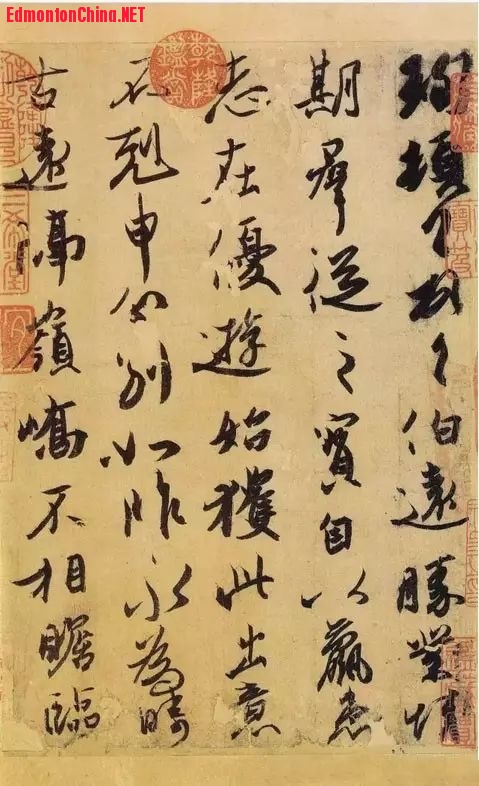 EdmontonChina.NET
珣頓首頓首伯遠勝業情
期羣從之寶自以羸患
志在優遊始獲此出意
不剋申分別如昨永為疇
古遠隔嶺嶠不相瞻臨